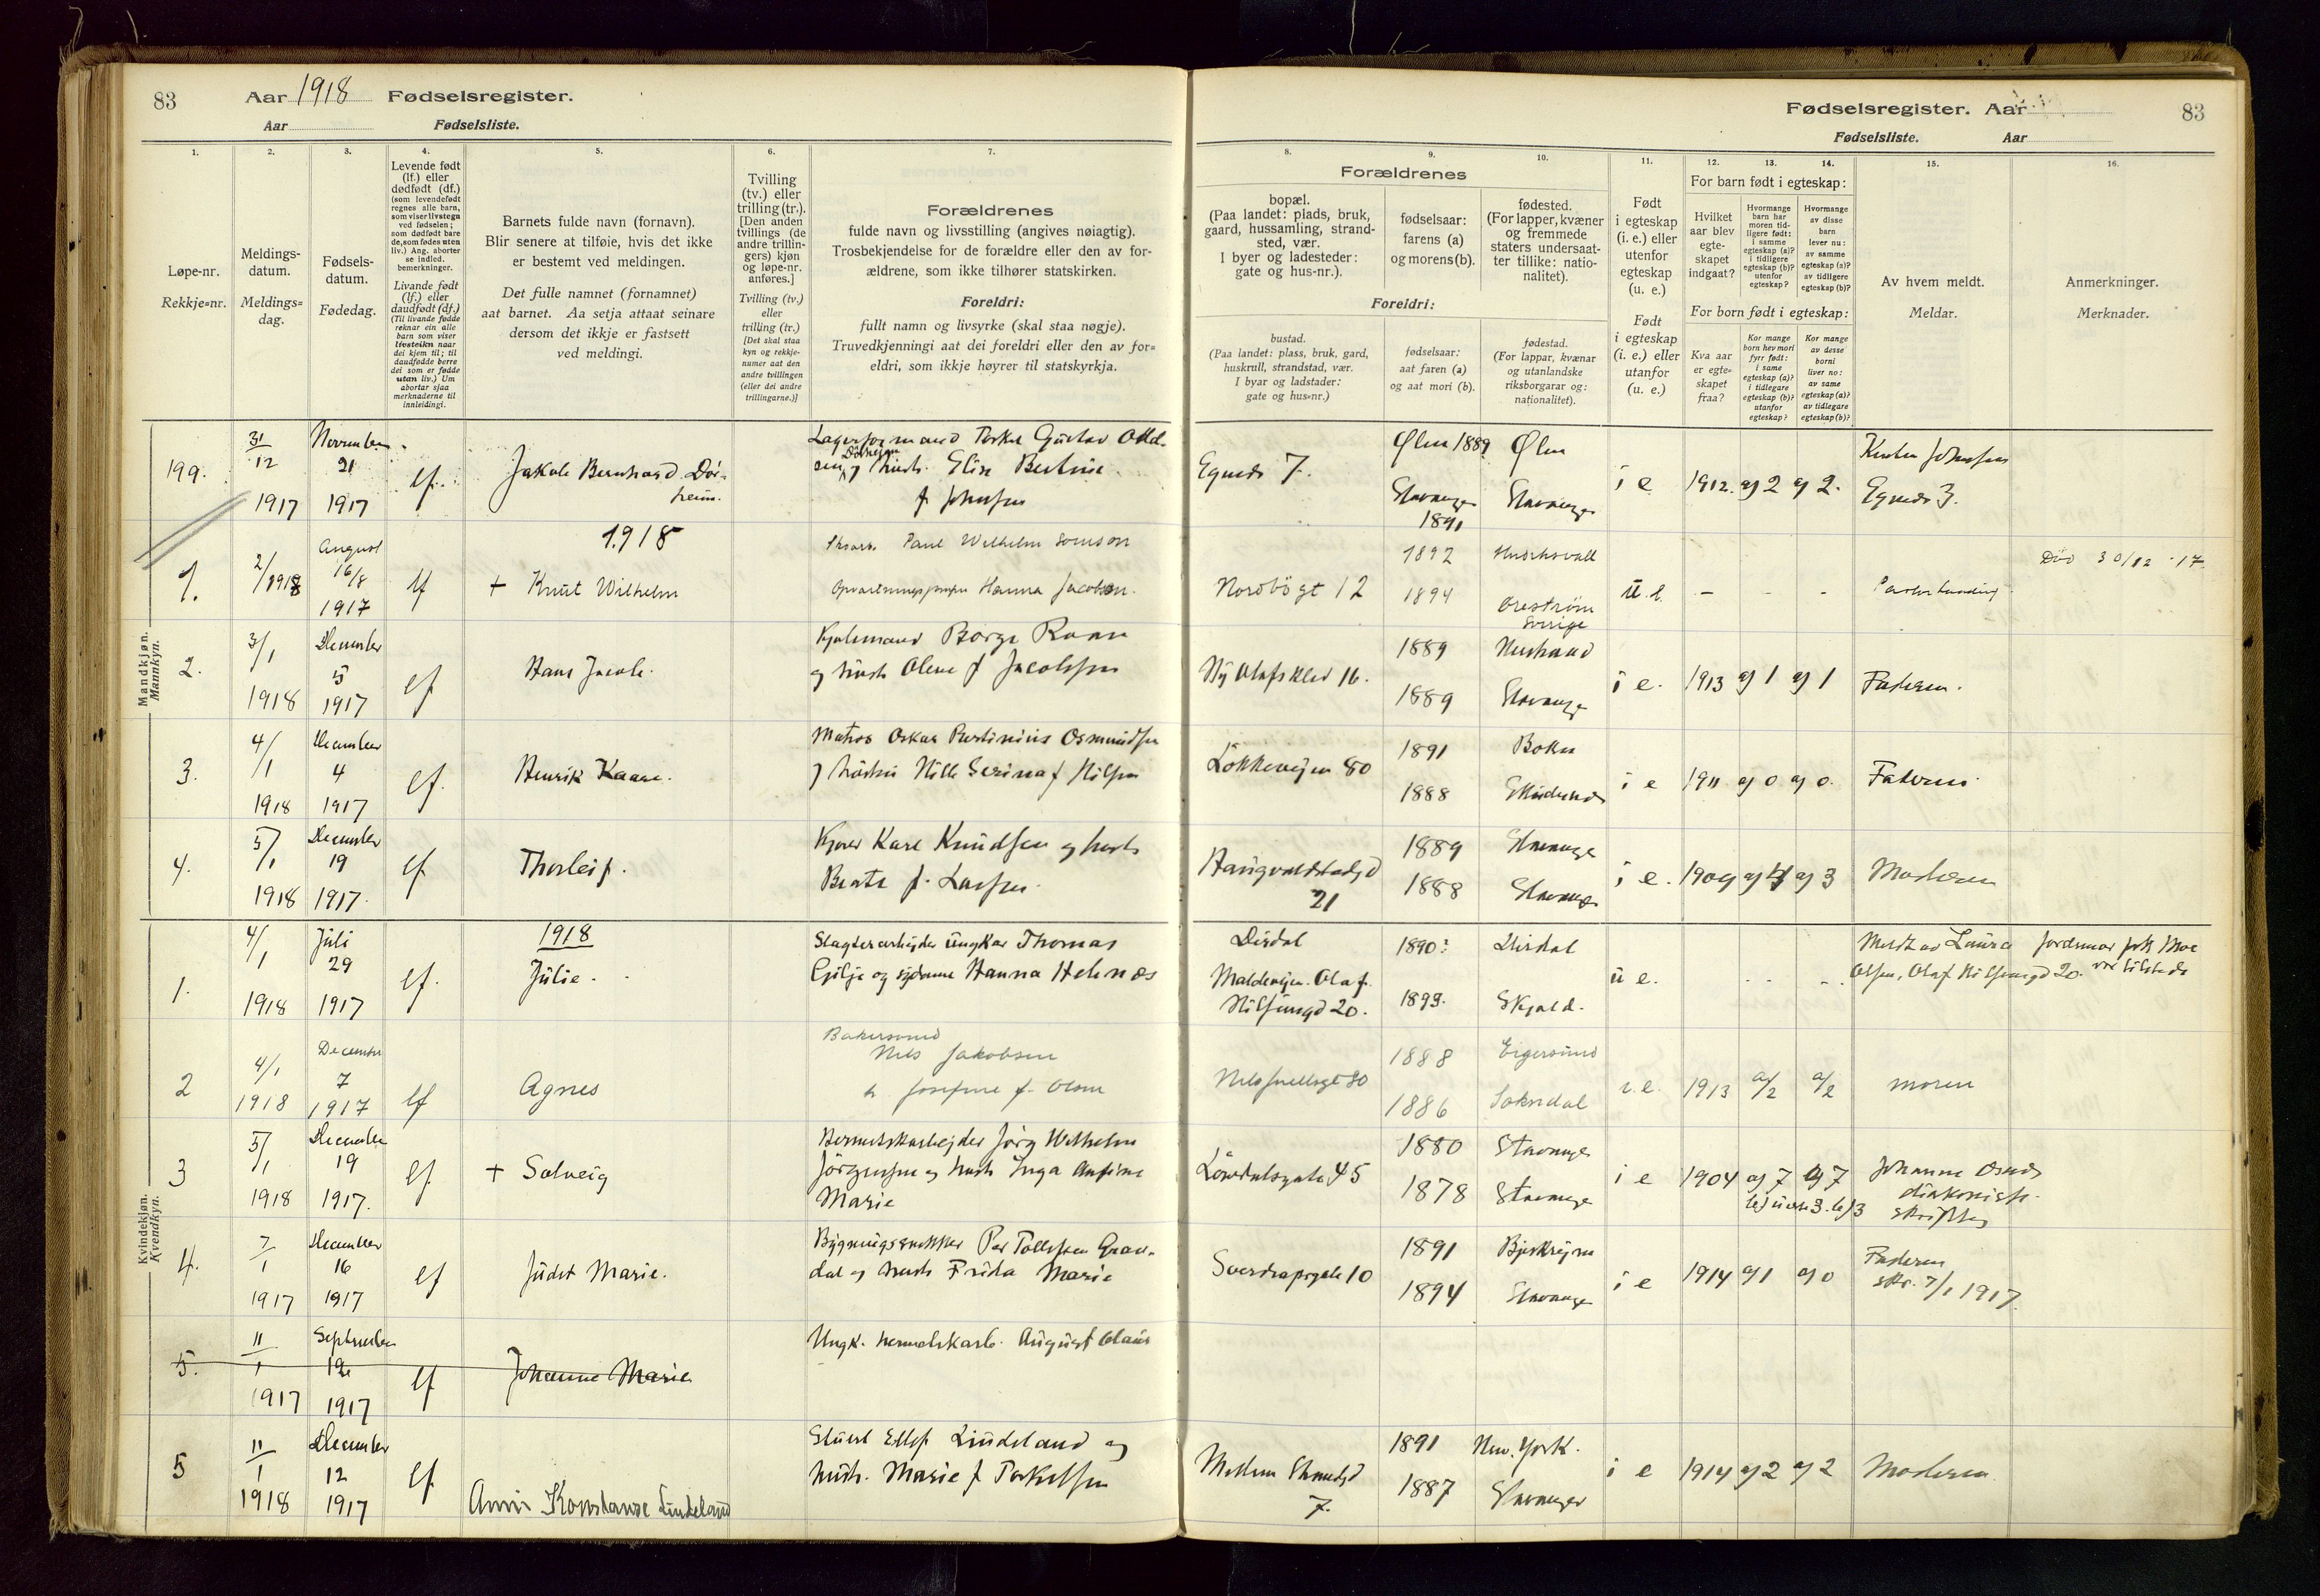 83
Aar 1918 Fødselsregister.
Aar Fødselsliste.
1.
Løpe-nr.
Rekkje=nr.
2.
Meldings-
datum.
Meldings=
dag.
3.
Fødsels-
datum.
Fødedag.
4.
Levende født
(lf.) eller
dødfødt (df.)
(som levendefødt
regnes alle barn,
som viser livstegn
ved fødselen;
som dødfødt bare
de, som fødes uten
liv.) Ang. aborter
se indled.
bemerkninger.
Livande født
(lf.) eller
daudfødt (df.)
(Til livande fødde
reknar ein alle
barn som viser
livsteikn naar
dei kjem til; til
daudfødde berre
dei som er fødde
utan liv.) Um
abortar sjaa
merknaderne til
innleidingi.
5.
Barnets fulde navn (fornavn).
Blir senere at tilføie, hvis det ikke
er bestemt ved meldingen.
Det fulle namnet (fornamnet)
aat barnet. Aa setja attaat seinare
dersom det ikkje er fastsett
ved meldingi.
6.
Tvilling
(tv.) eller
trilling (tr.).
[Den anden
tvillings (de
andre trillin-
gers) kjøn
og løpe-nr.
anføres.]
Tvilling (tv.)
eller
trilling (tr.)
[Det skal staa
kyn og rekkje-
numer aat den
andre tvillingen
(eller dei andre
trillingarne.)]
7.
Forældrenes
fulde navn og livsstilling (angives nøiagtig).
Trosbekjendelse for de forældre eller den av for-
ældrene, som ikke tilhører statskirken.
Foreldri:
fullt namn og livsyrke (skal staa nøgje).
Truvedkjenningi aat dei foreldri eller den av for=
eldri, som ikkje høyrer til statskyrkja.
Fødselsregister. Aar
83
Fødselsliste. Aar
Forældrenes
8.
bopæl.
(Paa landet: plads, bruk,
gaard, hussamling, strand-
sted, vær.
I byer og ladesteder:
gate og hus-nr.).
9.
fødselsaar:
farens (a)
og morens (b).
10.
fødested.
(For lapper, kvæner
og fremmede
staters undersaat-
ter tillike: natio-
nalitet).
Foreldri:
bustad.
(Paa landet: plass, bruk, gard,
huskrull, strandstad, vær.
I byar og ladstader:
gate og hus=nr.)
fødselsaar:
aat faren (a)
og aat mori (b).
fødestad.
(For lappar, kvænar
og utanlandske
riksborgarar og:
nationalitet).
11.
Født
i egteskap
(i. e.) eller
utenfor
egteskap
(u. e.)
Født
i egteskap
(i. e.) eller
utanfor
(u. e.)
12. 13. 14.
For barn født i egteskap:
Hvilket
aar blev
egte-
skapet
indgaat?
Hvormange
barn har
moren tid-
ligere født:
i samme
egteskap (a)?
i tidligere
egteskap (b)?
utenfor
egteskap?
Hvormange
av disse
barn
lever nu:
av samme
egteskap (a)?
av tidligere
egteskap (b)?
For born født i egteskap:
Kva aar
er egte=
skapet
fraa?
Kor mange
born hev mori
fyrr født:
i same
egteskap (a)?
i tidlegare
egteskap (b)?
utanfor
egteskap?
Kor mange
av desse
borni
liver no:
av same
egteskap (a)?
av tidlegare
egteskap (b)?
15.
Av hvem meldt.
Meldar.
16.
Anmerkninger.
Merknader.
Mandkjøn.
Mannkyn.
199. 31/12 1917 November 21 1917 lf. Jakob Bernhard Dør-
heim.
Lagerformand Torkel Gustav Odd-
sen Dørheim og hust. Elise Bertine
f Johnsen
Egneds 7. Ølen 1889 Ølen
Stavanger 1891 Stavanger
i e 1912. a) 2 a) 2.
Egneds 3.
1918
1. 2/1 1918 August 16/8 1917 lf + Knut Wilhelm
Paul Wilhelm
Hanna Jacobsen.
Nordbøgt 12 1892
1894
Sverige
u. e. - - - Død 30/12 - 17.
2. 3/1 1918 December 5 1917 lf Hans Jacob.
Børge Raan
og hust Olene f Jacobsen
Ny Olafsklev 16. 1889
1889 Stavanger
i e. 1913 a) 1 a) 1 Faderen.
3. 4/1 1918 December 4 1917 lf. Henrik Kaare.
Matros Oskar Bertinius Osmundsen
og hustru Nille Serina f Nilsen
Løkkeveien 80 1891 Bokn
1888
i e 1911. a) 0 a) 0. Faderen.
4. 5/1 1918 December 19 1917. lf Thorleif.
Kjører Karl Knudsen og hust
Berta f. Larsen.
Haugvaldstadgd
21
1889 Stavanger
1888 Stavanger
i e. 1909 a) 4 a) 3 Moderen
Kvindekjøn.
Kvendkyn.
1918
1. 4/1 1918 Juli 29 1917 lf. Julie.
Slagteriarbejder ungkar Thomas
Gilje og sydame Hanna Helnæs
Dirdal
Maldeveien. Olaf
Nilsensgd 20.
1890? Dirdal
1899. Skjold.
u e. - - - - Meldt av Laura
Olsen, Olaf Nilsensgd 20.
jordmor frk Moe
var tilstede
2 4/1 1918 December 7 1917 lf Agnes
Bakersvend
Nils Jakobsen
h Josefine f. Olsen
Nils Juelsgt 30 1888 Eigersund
1886 Sokndal
i. e. 1913 a/2 a/2 moren
3 5/1 1918 December 19 1917. lf + Solveig
Hermetikarbejder Jørg Wilhelm
Jørgensen og hust Inga Anfine
Marie
Løvdalsgate 45 1880 Stavanger
1878 Stavanger
i e 1904 a) 7 a) 7
Johanne
diakonisse.
4. 7/1 1917 December 16 1917 lf Judit Marie.
Bygningssnekker Per Tollefsen Grav-
dal og hust Frida Marie
Sverdrupsgate 10 1891 Bjerkrejm
1894 Stavanger
i e 1914 a) 1 a) 0 Faderen
skr. 7/1 1917.
5. 11/1 1917 September 12 1917 lf Johanne Marie
Ungk. hermetikarb. August Olaus
5 11/1 1918 December 12 1917 lf Anni Konstanse Lindeland
Stuert Ellef Lindeland og
hust. Marie f Torkelsen
Mellem Stramdgd
7.
1891 New. York.
1887 Stavanger
i e 1914 a) 2 a) 2 Moderen